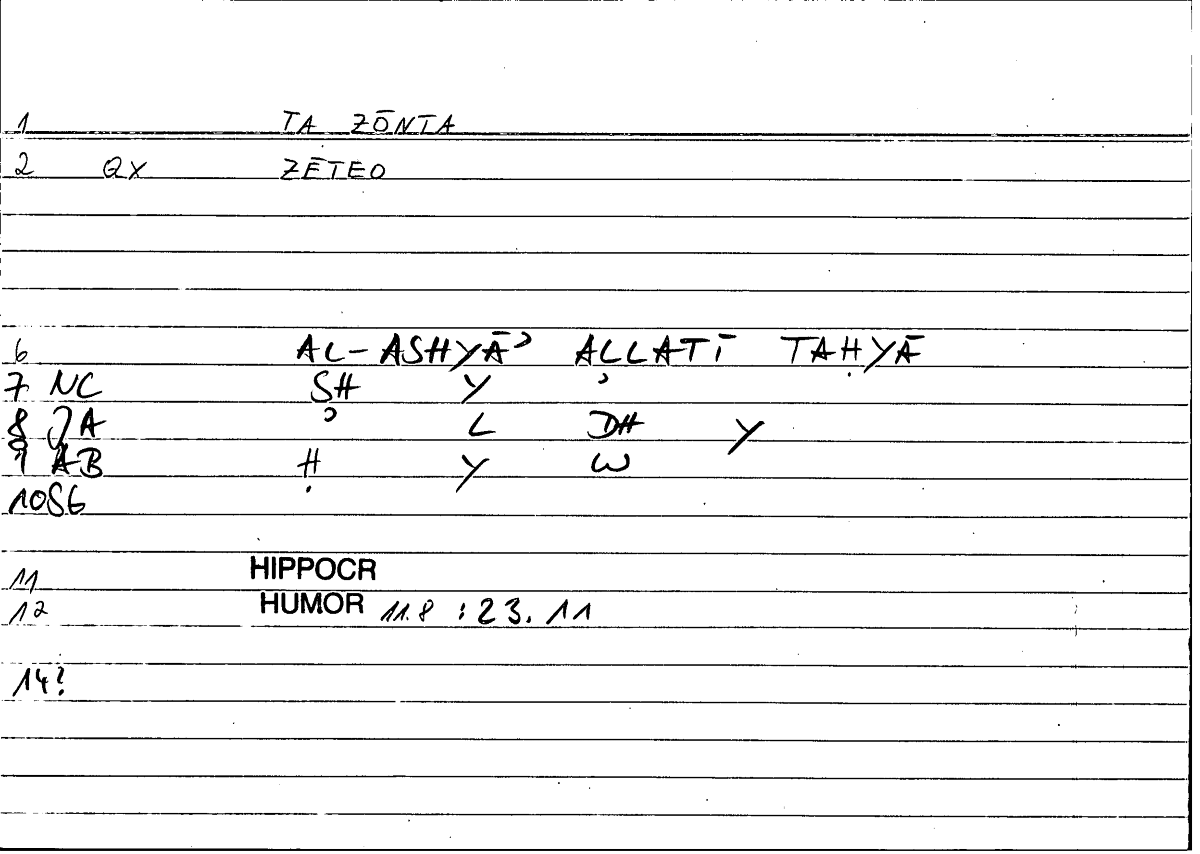 1 TA ZŌNTA
2 QX ZĒTEO
6 AL-ASHYĀʾ ALLATĪ TAḤYĀ
7 NC SH Y ʾ
8 JA ʾ L DH Y
9 AB Ḥ Y W
10 SG
11 HIPPOCR
12 HUMOR 11.8 : 23.11
14?